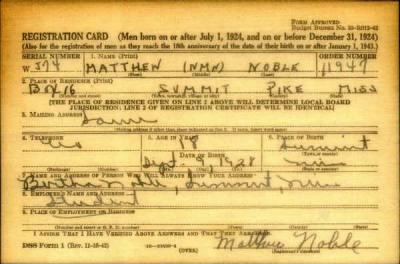 FORM APPROVED
Budget Bureau No.
REGISTRATION CARD (Men born on or after July 1, 1924, and on or before December 31, 1924)
(Also for the registration of men as they reach the 18th anniversary of the date of their birth on or after January 1, 1943.)
SERIAL NUMBER 1. NAME (Print) ORDER NUMBER
W 574 MATTHEW (NMN) NOBLE 11947
(First) (Middle) (Last)
2. PLACE OF RESIDENCE (Print)
Box 16 SUMMIT PIKE MISS
[THE PLACE OF RESIDENCE GIVEN ON LINE 2 ABOVE WILL DETERMINE LOCAL BOARD
JURISDICTION; LINE 2 OF REGISTRATION CERTIFICATE WILL BE IDENTICAL]
3. MAILING ADDRESS
Same
[Mailing address if other than place indicated on line 2. If same, insert word same]
4. TELEPHONE 5. AGE IN YEARS 6. PLACE OF BIRTH
No 18 Summit
DATE OF BIRTH
Sept. 9, 1928 Miss
7. NAME AND ADDRESS OF PERSON WHO WILL ALWAYS KNOW YOUR ADDRESS
Bertha Noble, Summit, Miss
8. EMPLOYER'S NAME AND ADDRESS
Student
9. PLACE OF EMPLOYMENT OR BUSINESS
(Number and street or R. F. D. number) (Town) (County) (State)
I AFFIRM THAT I HAVE VERIFIED ABOVE ANSWERS AND THAT THEY ARE TRUE.
DSS Form 1 (Rev. 11-16-42) (OVER) Matthew Noble
(Registrant's signature)